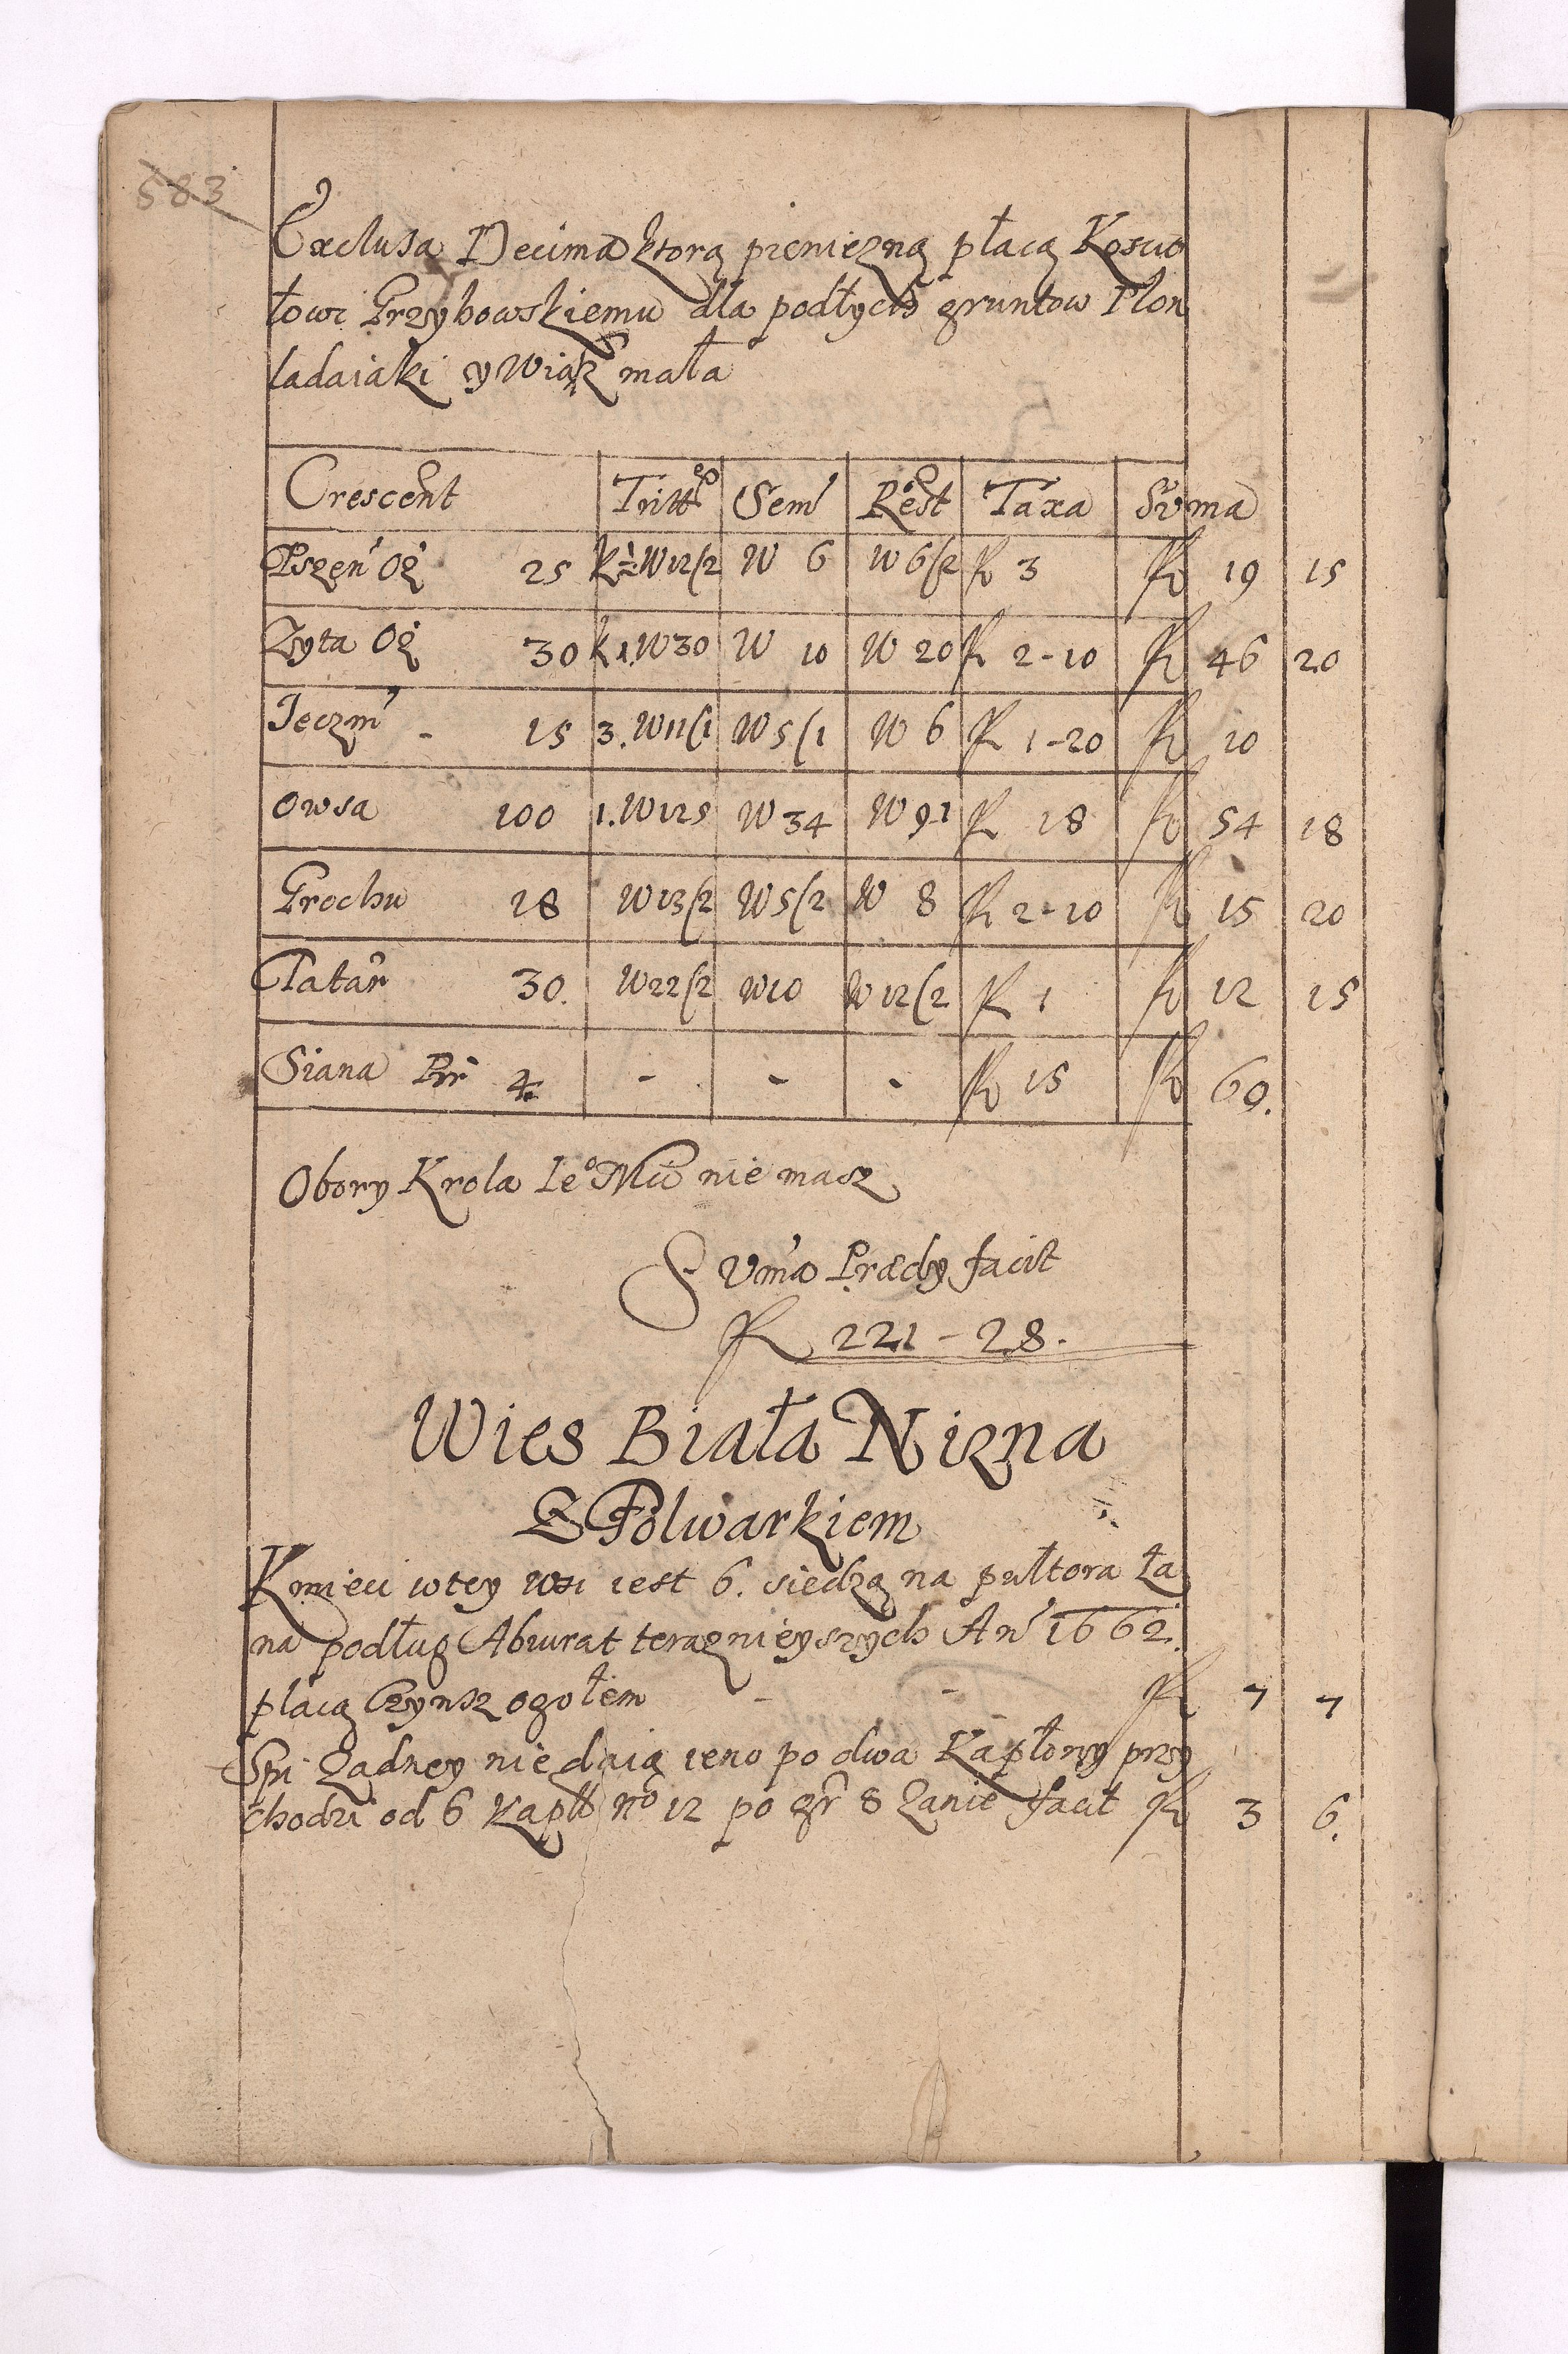 583
Exclusa Decima ktorą pieniezną płacą Koscio
łowi Grzybowskiemu dla podłych gruntow Plon
ladaiaki y Wiaz mała
Crescent Tritt Sem Rest Taxa Suma
Pszen Oz 25 k½ W12(2 W 6 W 6(2 fl 3 fl 19 15
Zyta Oz 30 k 1. W30 W 10 W 20 fl 2-10 fl 46 20
Jeczm - 15 3. W11(1 W5(1 W 6 fl 1-20 fl 10
Owsa 100 1. W125 W34 W 91 fl 18 fl 54 18
Grochu 18 W13(2 W5(2 W 8 fl 2-10 fl 15 20
Tatar 30. W22(2 W10 W12(2 fl 1 fl 12 15
Siana 4. - - - fl 15 fl 60.
Obory Krola Ieº Mci nie masz
Suma Prædy facit
fl 221-28.
Wies Biała Nizna
Z Folwarkiem
Kmieci wtey wsi iest 6. siedzą na pułtora Ła
na podług Abiurat teraznieyszych An 1662.
płacą Czynsz ogołem - - fl 7 7
Spi Zadney nie daią ieno po dwa Kapłony przy
chodzi od 6 Kapł nº 12 po gr 8 Zanie facit fl 3 6.